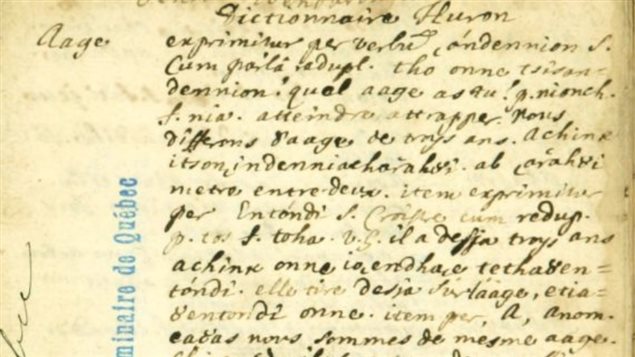 Dictionnaire Huron
Aage exprimitur per verbũ, ándennion s.
Cum parla redupl. tho onne tsisan=
dennion! quel aage as tu! p. nionch.
f. nia. atteindre attrapper. Nous
differons d'aage de troys ans. Achink
itson, indenniacharahȣi. ab, carahȣi
metro entre deux. item exprimitur
per Entóndi s. Croistre cum redup.
p. tos f. toha. v.g. il a desja troys ans
achink onne io, endhaçe tethaȣen=
tóndi. elle tire desja sur l'aage, etia=
ȣentondi onne. item per, A, anom.
eaȣas nous sommes de mesme aage.
minaire de Québec